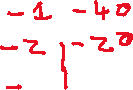 -1 -40
-2 | -20
-